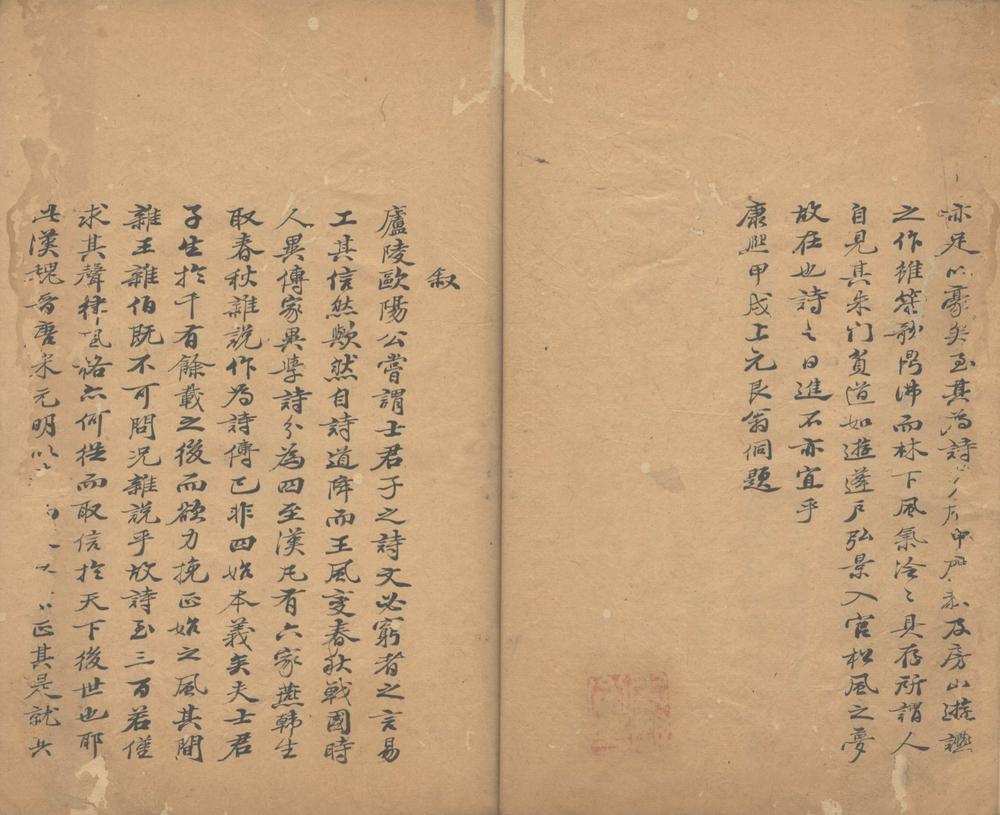 亦足以豪矣至其為詩
之作雖箬形仿彿而林下風氣泠〻具存所謂人
自見其朱门貧道如遊蓬戶弘景入官松風之夢
故在也詩之日進不亦宜乎
康熙甲戌上元艮翁侗題
叙
廬陵歐陽公嘗謂士君子之詩文必窮者之言易
工其信然歟然自詩道降而王風变春秋戰國時
人異傳家異學詩分為四至漢凡有六家燕韩生
取春秋雜說作為詩傳已非四始本義矣夫士君
子生於千有餘載之後而欲力挽正始之風其間
雜王雜伯既不可問況雜說乎故詩至三百若僅
求其聲律氣格亦何從而取信於天下後世也耶
此漢魏晉唐宋元明以 正其是就其